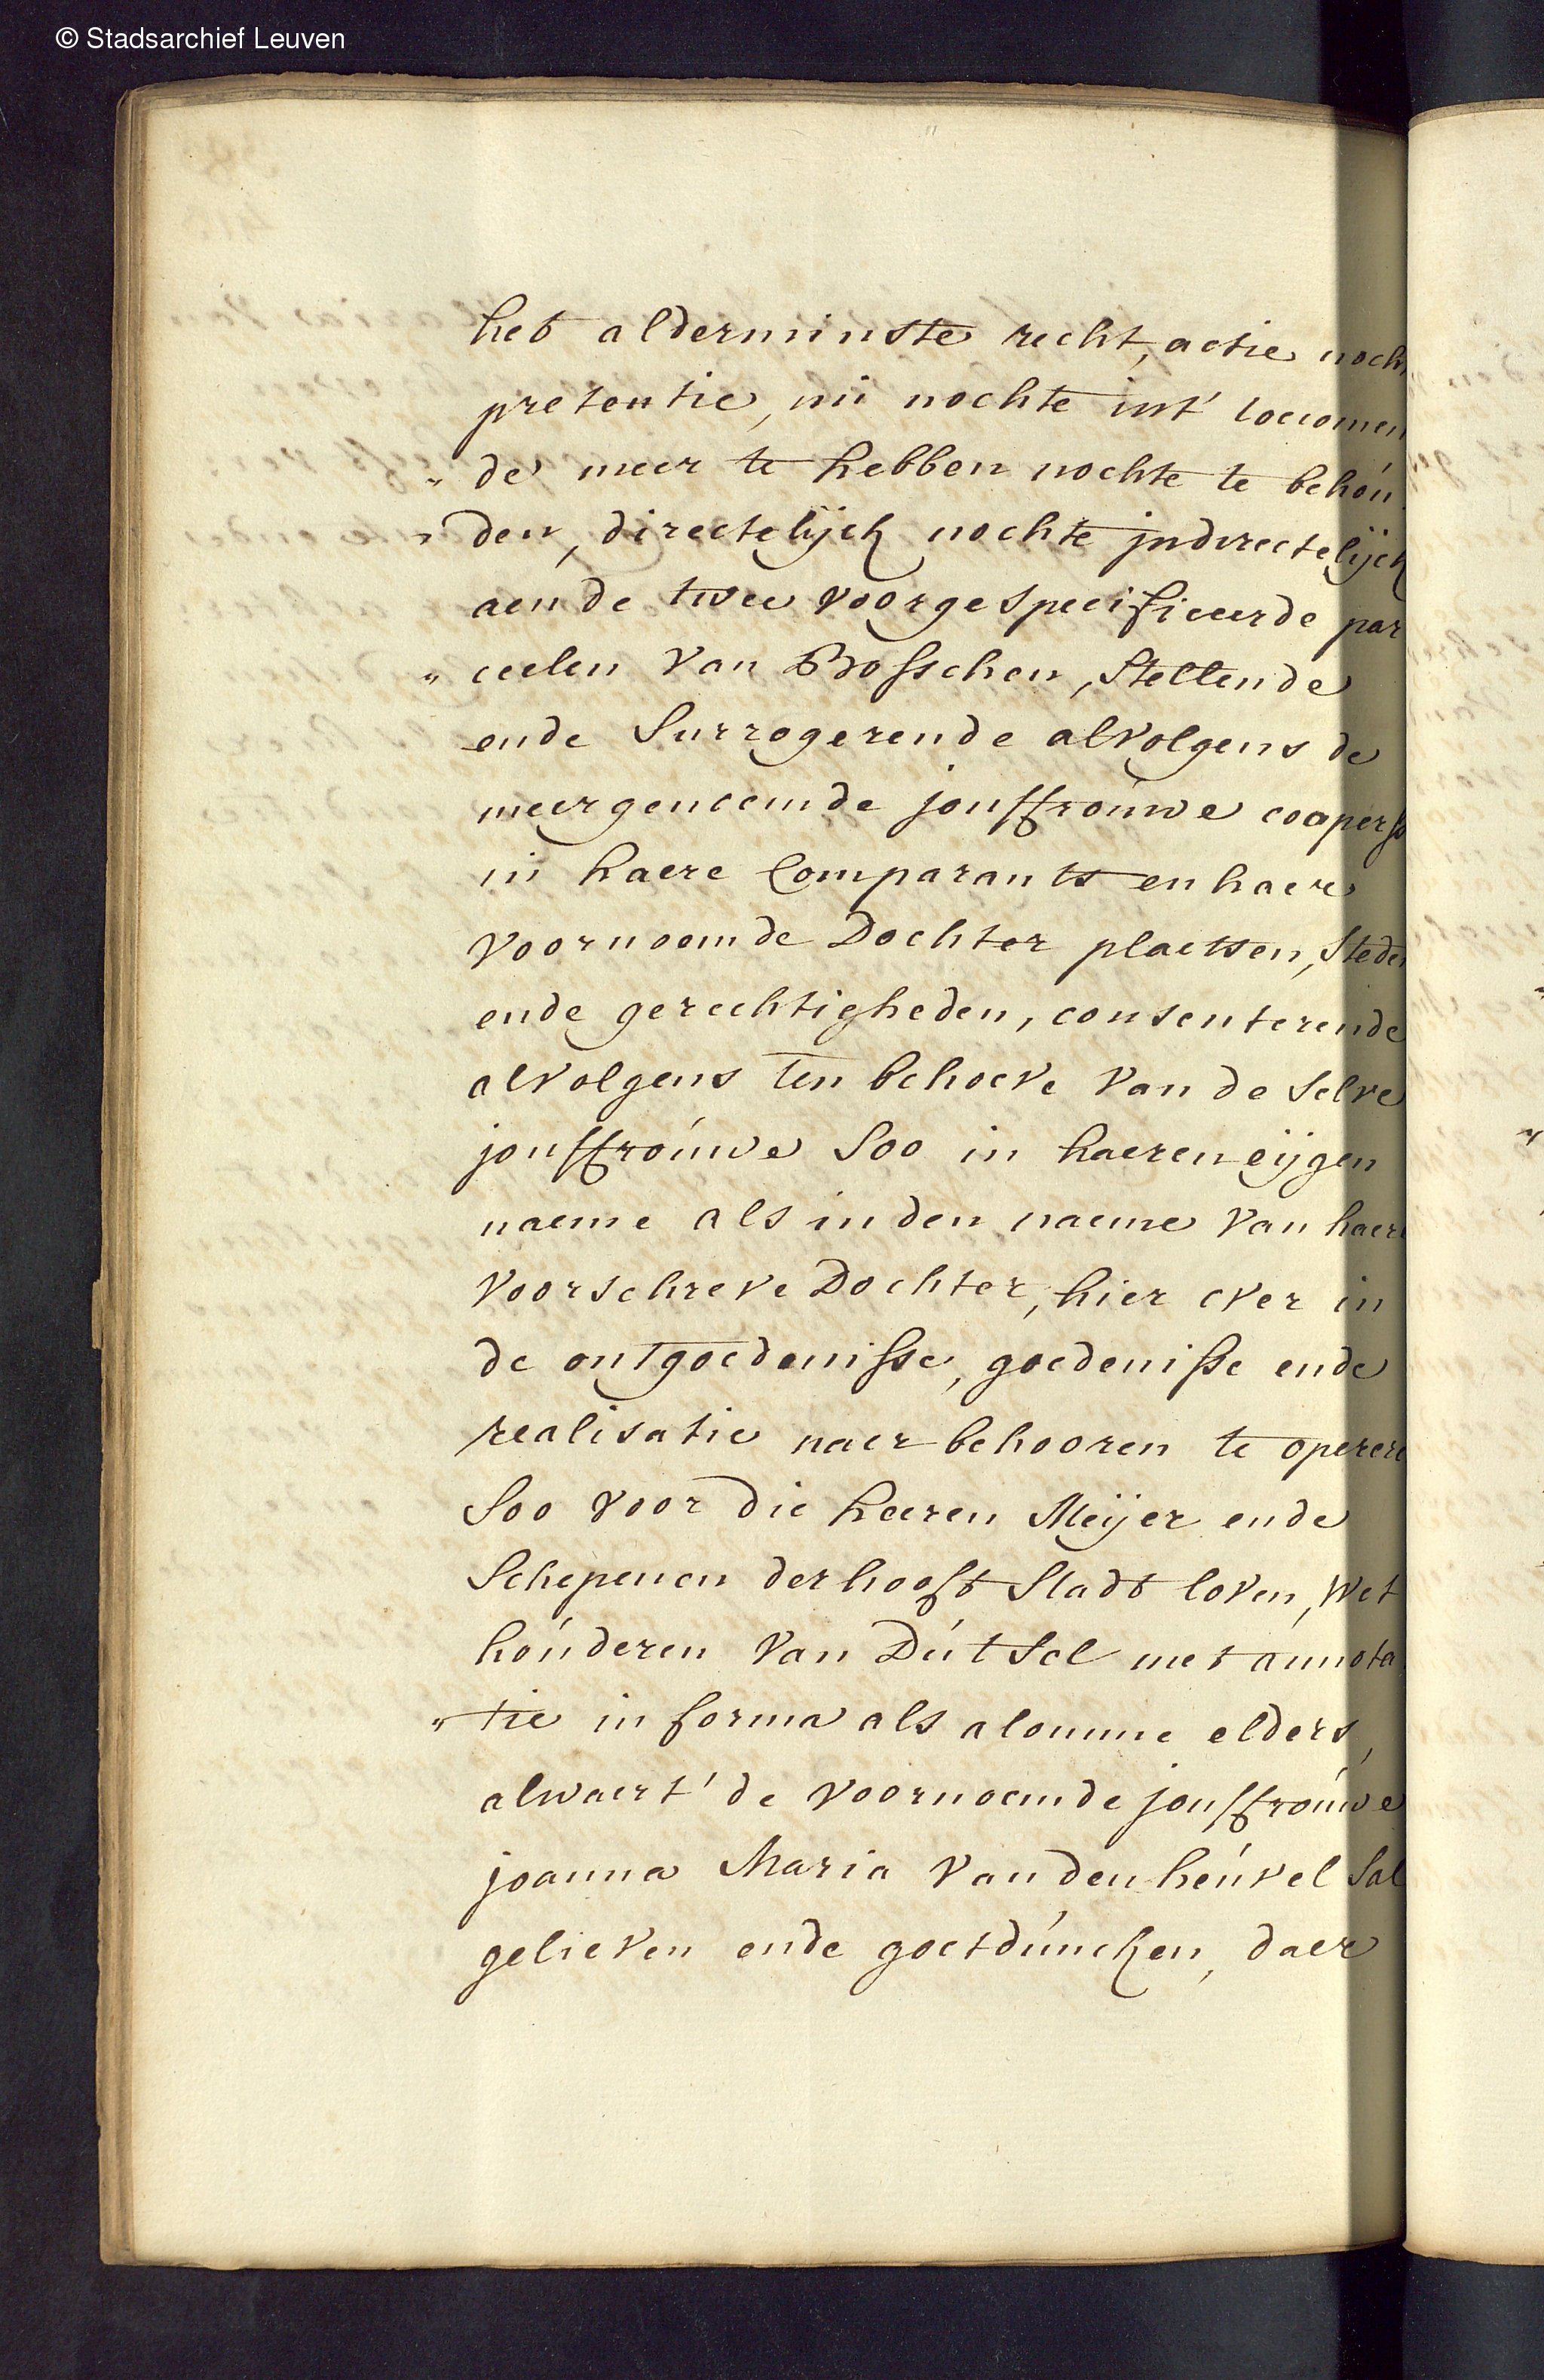 © Stadsarchief Leuven
het alderminste recht, actie noch
pretentie, nú nochte int' toecomen
" de meer te hebben nochte te behoú
" den, directelijck nochte jndirectelijck
aen de twee voorgespecificeerde par
" ceelen van Bosschen, stellende
ende surrogerende alvolgens de
meergenoemde jouffroúwe cooperse
in haere Comparants en haere
voornoemde Dochter plaetsen, steden
ende gerechtigheden, consenterende
alvolgens ten behoeve van de selve
jouffroúwe soo in haeren eijgen
naeme als in den naeme van haere
voorschreve Dochter, hier over in
de ontgoedenisse, goedenisse ende
realisatie naer behooren te operere
soo voor die heeren Meijer ende
schepenen der hooft stadt loven, wet
hoúderen van Dútsel met annota
" tie in forma als alomme elders,
alwaer t' de voornoemde jouffroúwe
joanna Maria vanden heúvel sal
gelieven ende goetdúncken, daer